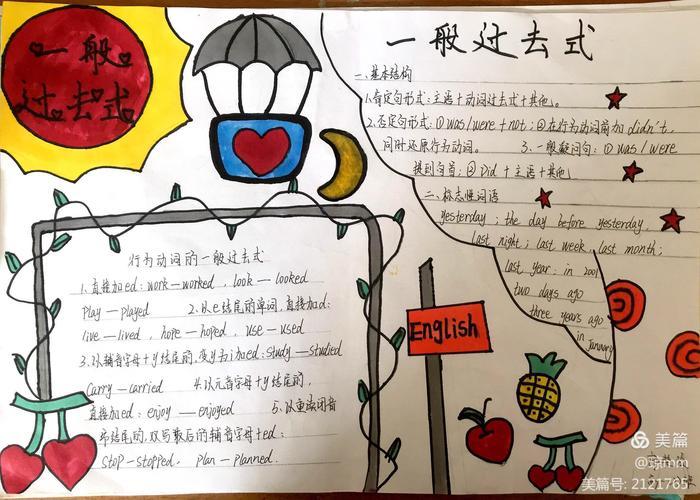 一般
过去式
一般过去式
一、基本结构
1.肯定句形式:主语+动词过去式+其他。
2.否定句形式:①was/were+not;②在行为动词前加didn't,
同时还原行为动词。 3.一般疑问句:①was/were
提到句首;②Did+主语+其他
二、标志性词语
yesterday; the day before yesterday,
last night; last week, last month;
last year; in 2001
two days ago
three years ago
in January
行为动词的一般过去式
1.直接加ed: work—worked, look—looked
play—played 2.以e结尾的单词,直接加d:
live—lived, hope—hoped, use—used
3.以辅音字母+y结尾的,变y为i加ed: study—studied
carry—carried 4.以元音字母+y结尾的,
直接加ed: enjoy—enjoyed 5.以重读闭音
节结尾的,双写最后的辅音字母+ed:
stop—stopped, plan—planned.
English
美篇
美篇号: 2121765